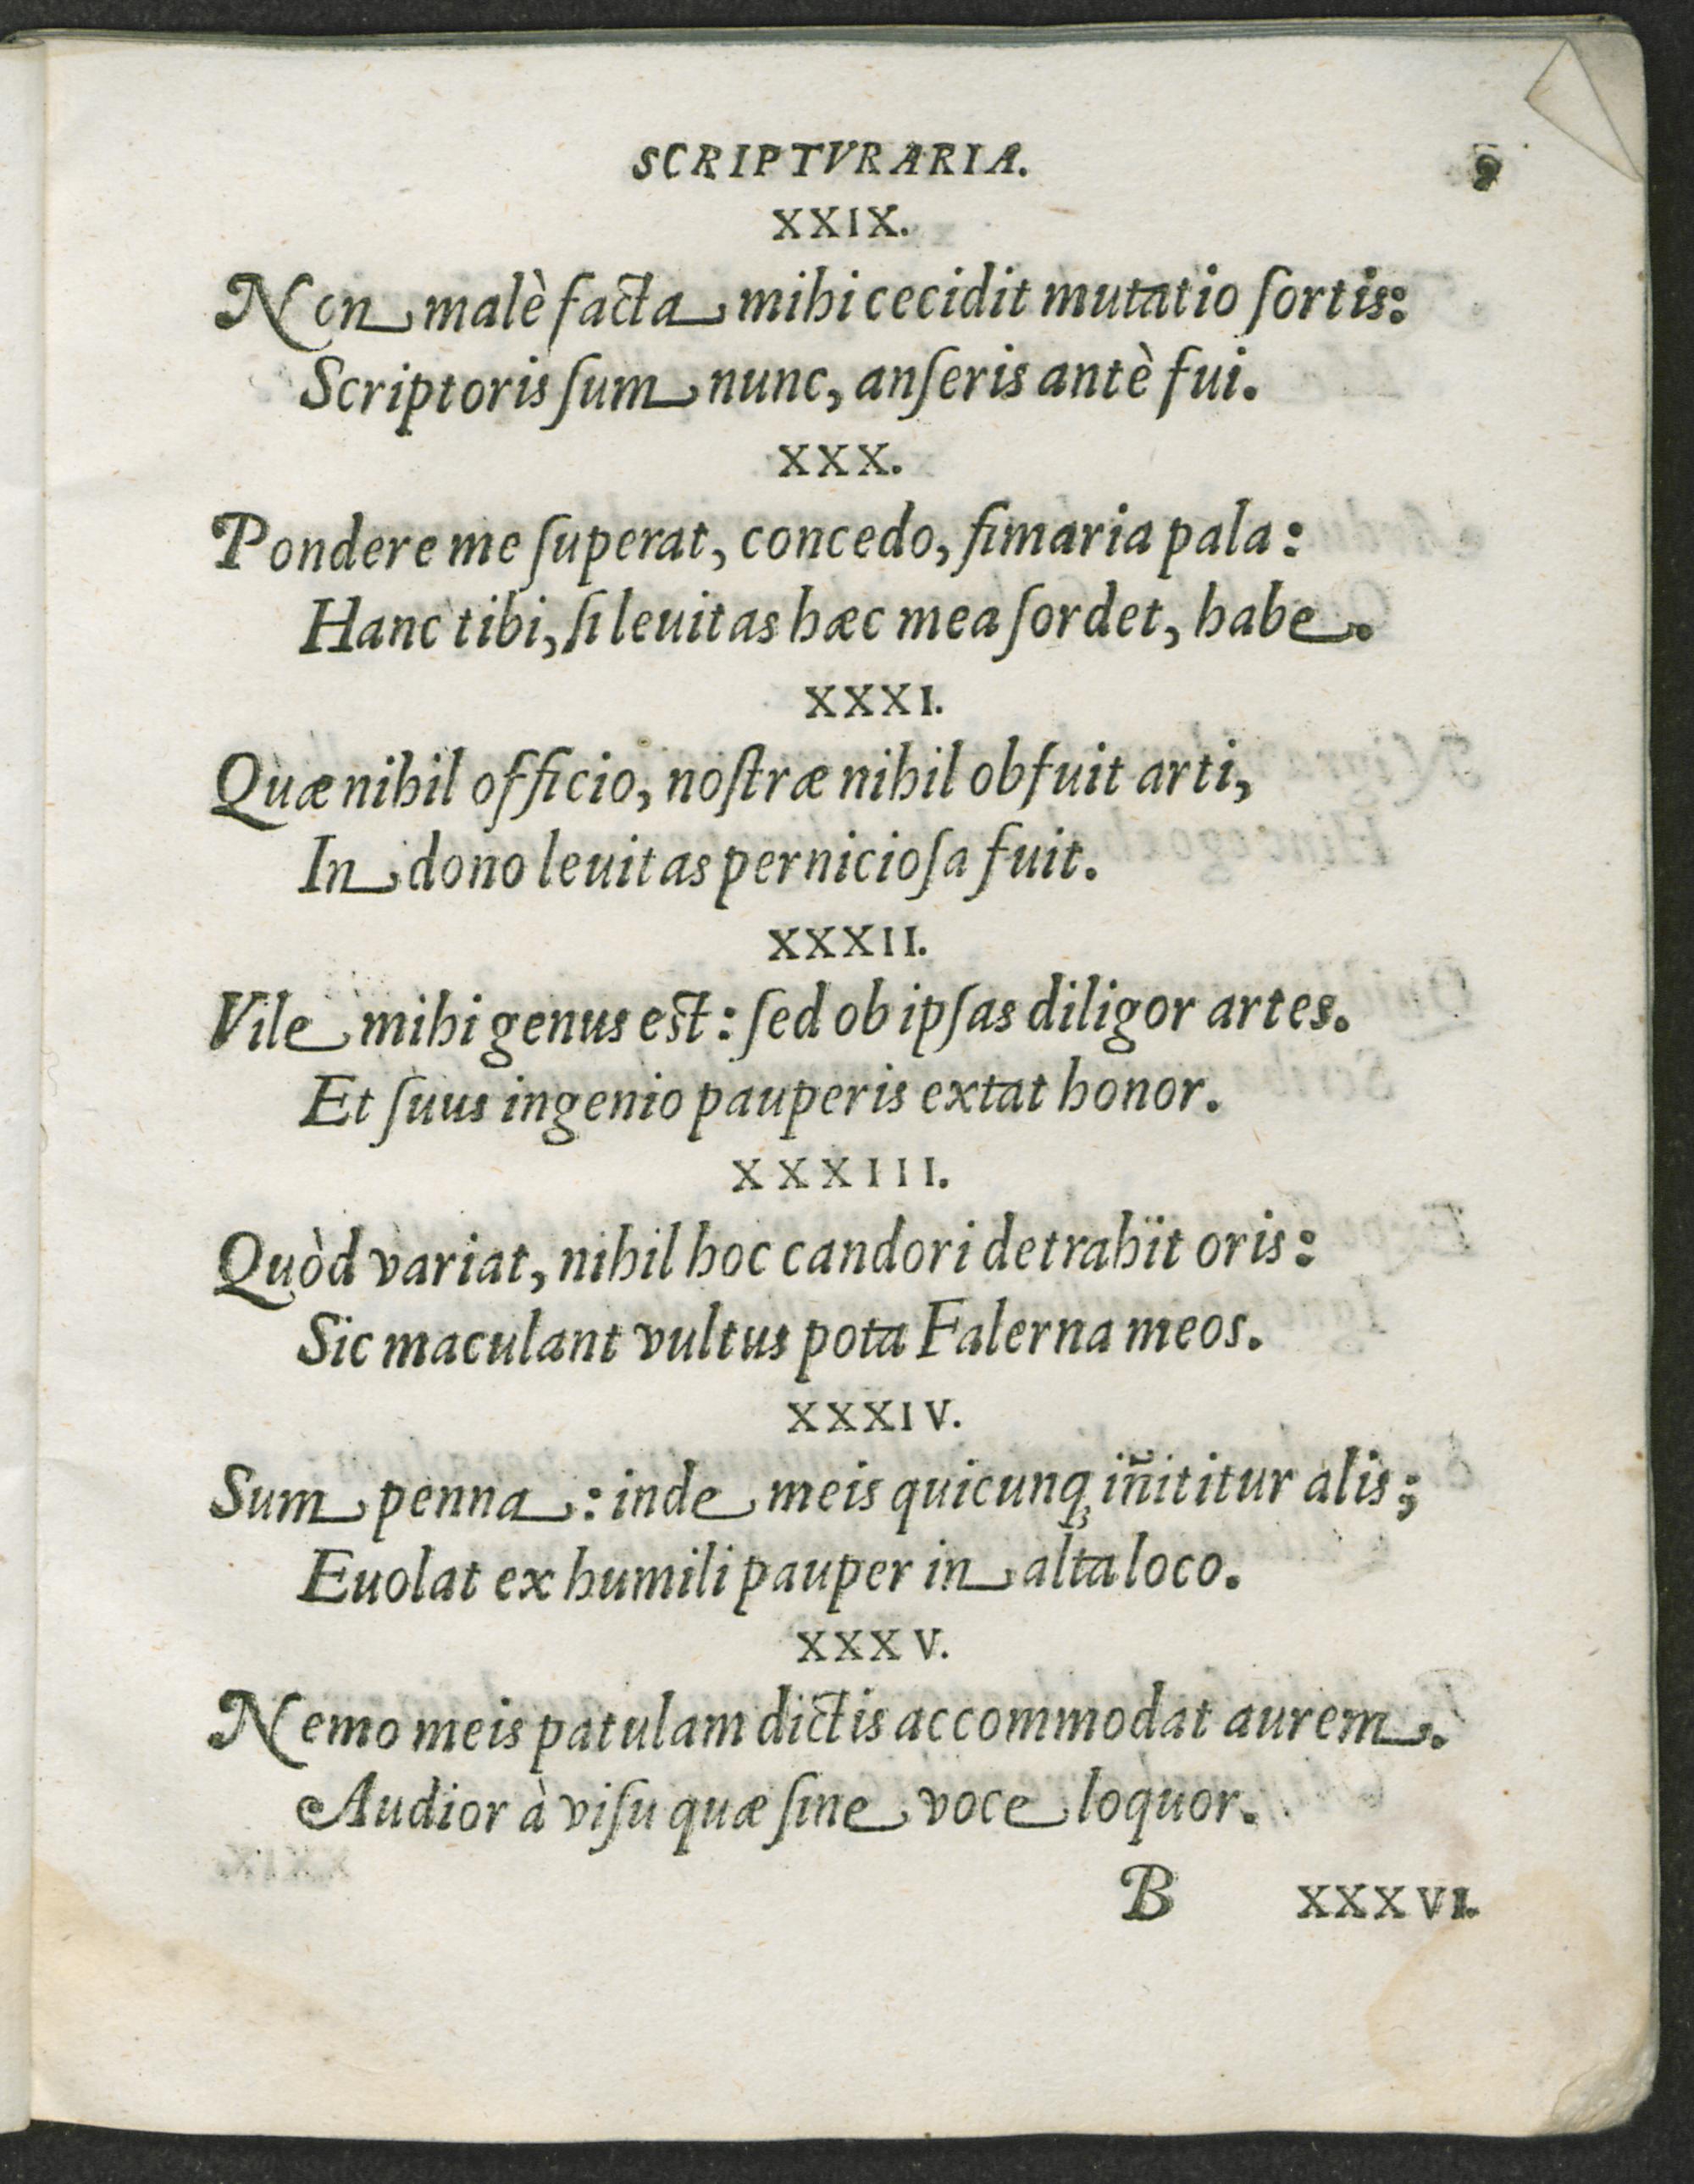 SCRIPTVRARIA. 9
XXIX.
Non malè facta mihi cecidit mutatio ſortis:
Scriptoris ſum nunc, anſeris antè fui.
XXX.
Pondere me ſuperat, concedo, fimaria pala:
Hanc tibi, ſi leuitas hæc mea ſordet, habe.
XXXI.
Quæ nihil officio, noſtræ nihil obfuit arti,
In dono leuitas pernicioſa fuit.
XXXII.
Vile mihi genus est: ſed ob ipſas diligor artes.
Et ſuus ingenio pauperis extat honor.
XXXIII.
Quòd variat, nihil hoc candori detrahït oris:
Sic maculant vultus pota Falerna meos.
XXXIV.
Sum penna: inde meis quicunq; iñititur alis;
Euolat ex humili pauper in alta loco.
XXXV.
Nemo meis patulam dictis accommodat aurem.
Audior à viſu quæ ſine voce loquor.
B XXXVI.